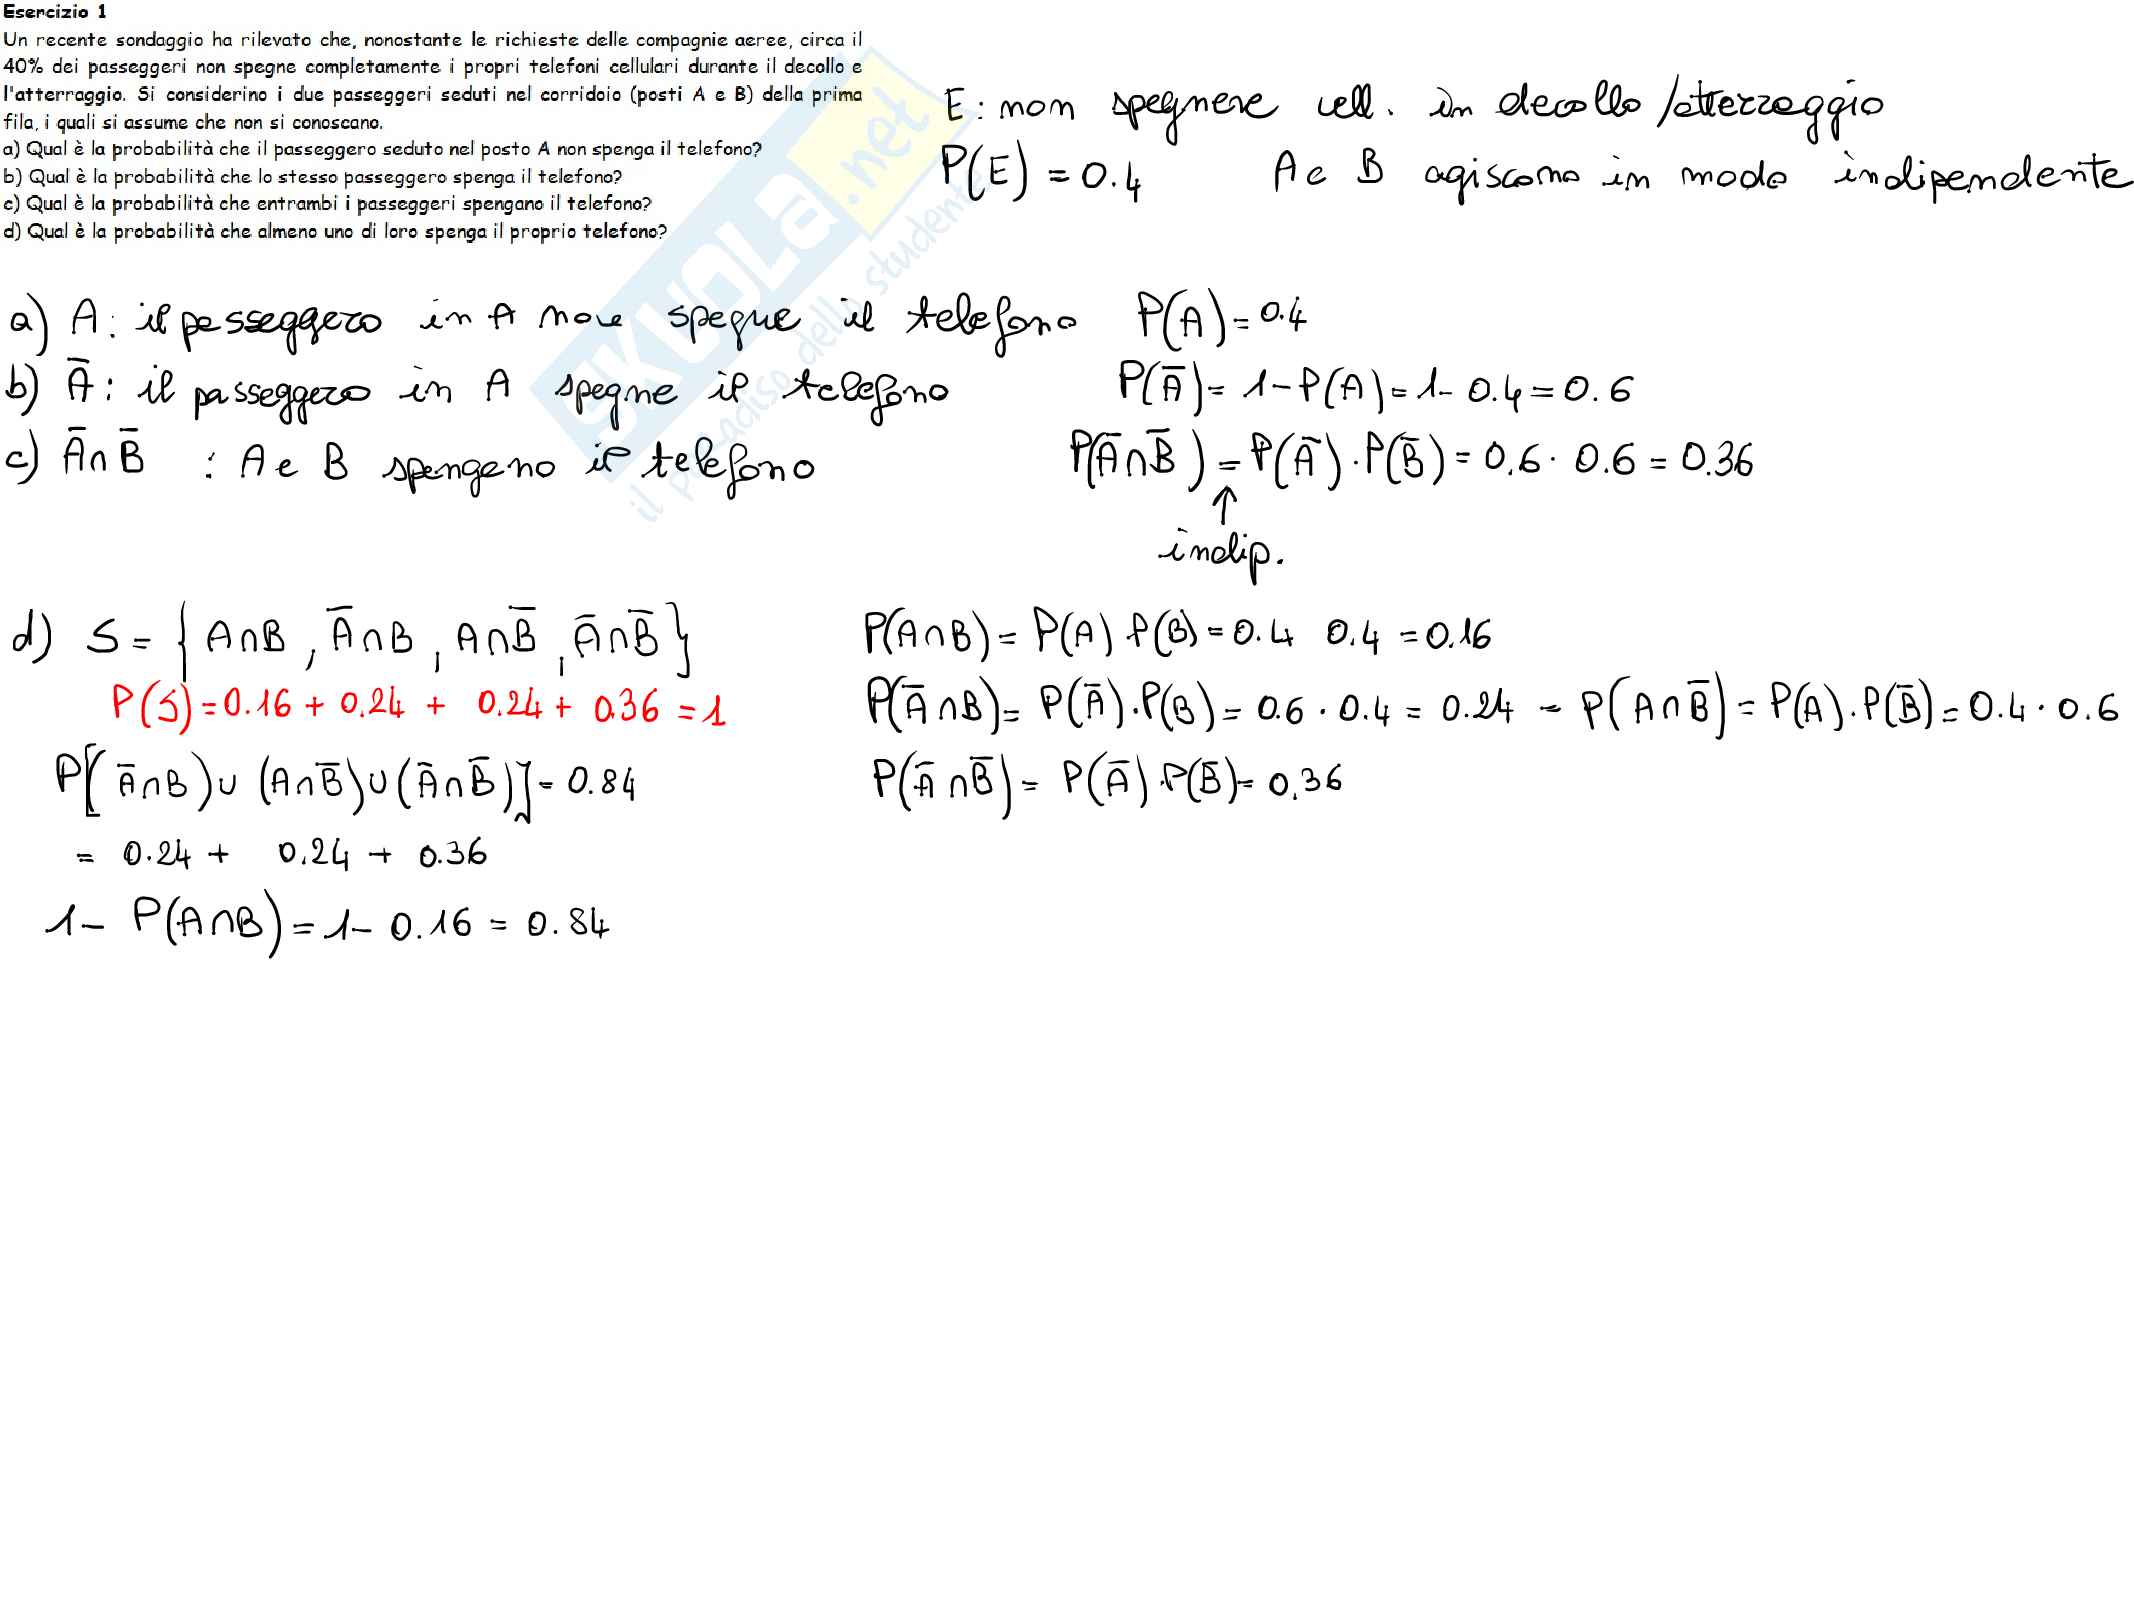 Esercizio 1
Un recente sondaggio ha rilevato che, nonostante le richieste delle compagnie aeree, circa il
40% dei passeggeri non spegne completamente i propri telefoni cellulari durante il decollo e
l'atterraggio. Si considerino i due passeggeri seduti nel corridoio (posti A e B) della prima
fila, i quali si assume che non si conoscano.
a) Qual è la probabilità che il passeggero seduto nel posto A non spenga il telefono?
b) Qual è la probabilità che lo stesso passeggero spenga il telefono?
c) Qual è la probabilità che entrambi i passeggeri spengano il telefono?
d) Qual è la probabilità che almeno uno di loro spenga il proprio telefono?
E: non spegnere cell. in decollo/atterraggio
P(E) = 0.4 A e B agiscono in modo indipendente
SKUOLA.net
il paradiso dello studente
a) A: il passeggero in A non spegne il telefono P(A) = 0.4
b) A̅: il passeggero in A spegne il telefono P(A̅) = 1 - P(A) = 1 - 0.4 = 0.6
c) A̅∩B̅ : A e B spengono il telefono P(A̅∩B̅) = P(A̅)·P(B̅) = 0.6 · 0.6 = 0.36
↑
indip.
d) S = { A∩B , A̅∩B , A∩B̅ , A̅∩B̅ } P(A∩B) = P(A)·P(B) = 0.4 0.4 = 0.16
P(S) = 0.16 + 0.24 + 0.24 + 0.36 = 1 P(A̅∩B) = P(A̅)·P(B) = 0.6 · 0.4 = 0.24 - P(A∩B̅) = P(A)·P(B̅) = 0.4 · 0.6
P[(A̅∩B)∪(A∩B̅)∪(A̅∩B̅)] = 0.84 P(A̅∩B̅) = P(A̅)·P(B̅) = 0.36
= 0.24 + 0.24 + 0.36
1 - P(A∩B) = 1 - 0.16 = 0.84